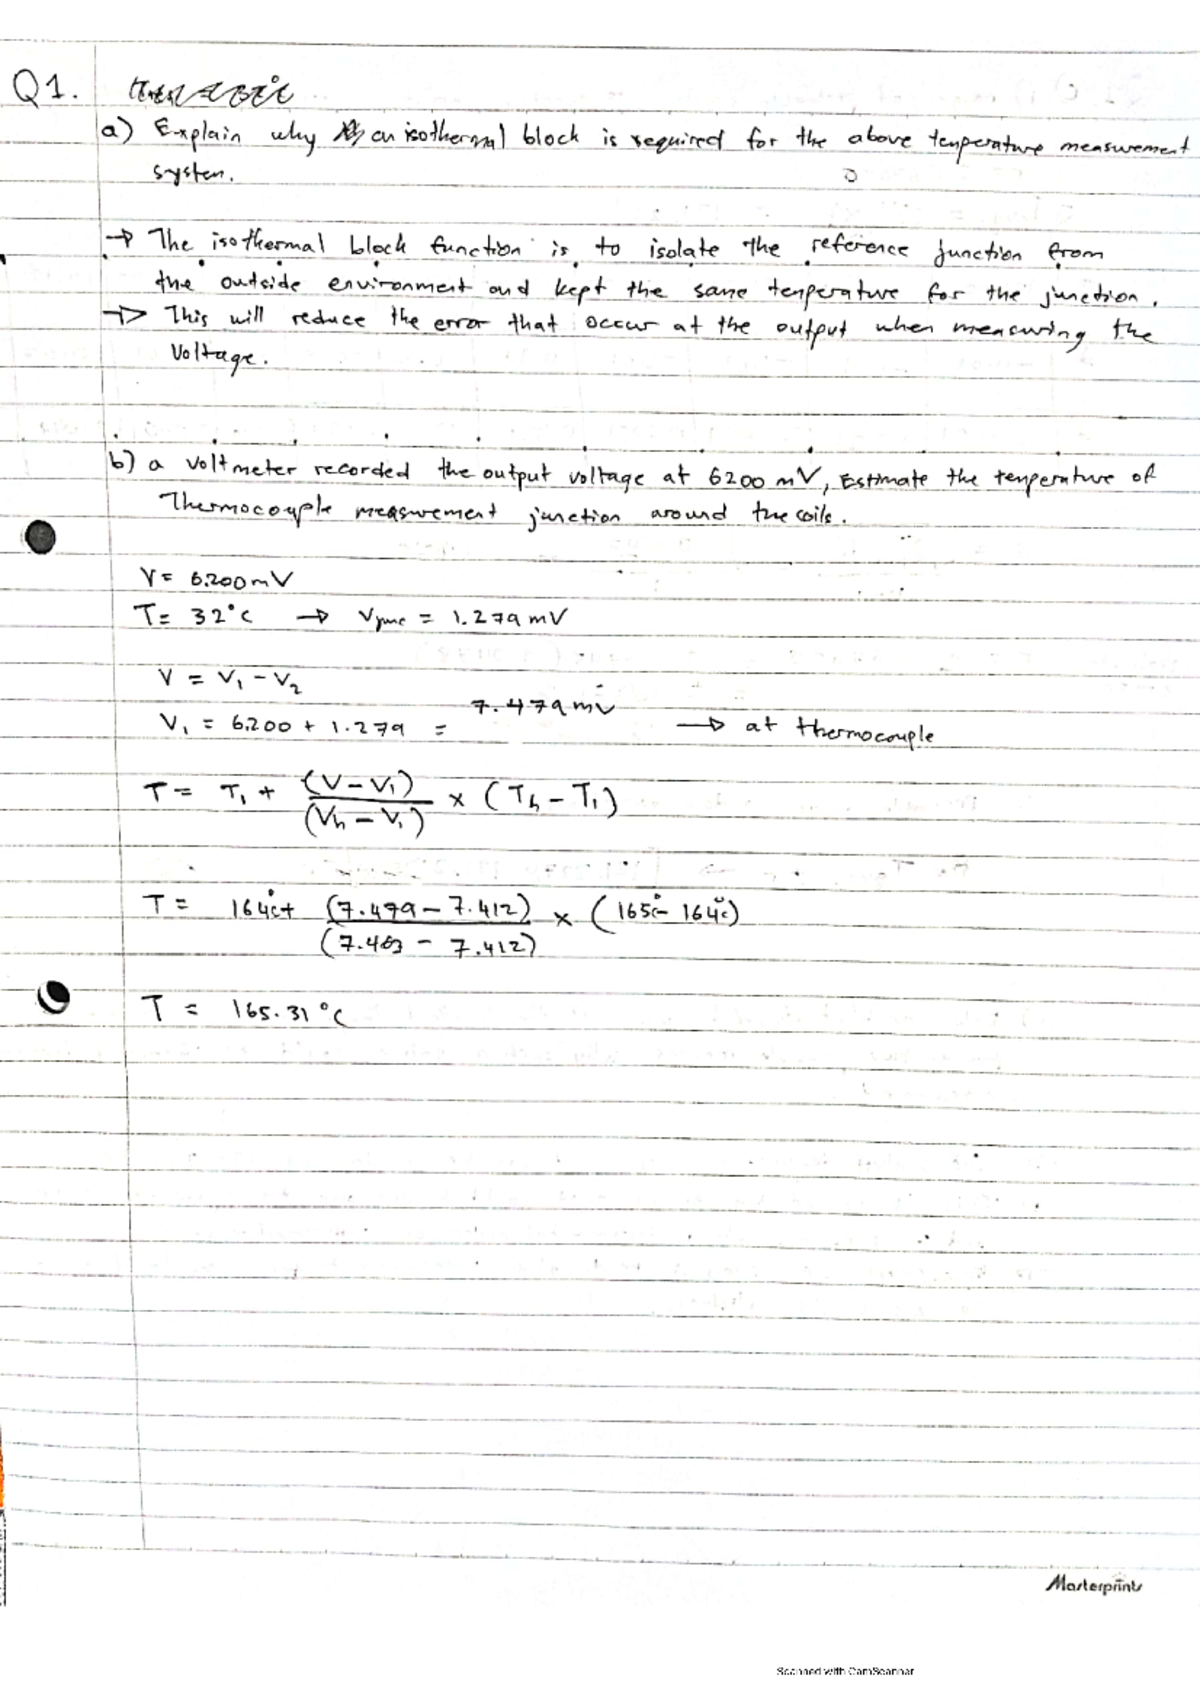 Q1.
a) Explain why an isothermal block is required for the above temperature measurement
system.
→ The isothermal block function is to isolate the reference junction from
the outside environment and kept the same temperature for the junction.
→ This will reduce the error that occur at the output when measuring the
Voltage.
b) a voltmeter recorded the output voltage at 6200 mV, Estimate the temperature of
Thermocouple measurement junction around the coils.
V = 6.200mV
T = 32°C → Vjunc = 1.279 mV
V = V₁ - V₂
7.479 mV
V₁ = 6.200 + 1.279 = → at thermocouple
T = T₁ + (V - V₁) / (Vh - V₁) × (Th - T₁)
T = 164°C + (7.479 - 7.412) / (7.463 - 7.412) × (165°C - 164°C)
T = 165.31°C
Masterprints
Scanned with CamScanner